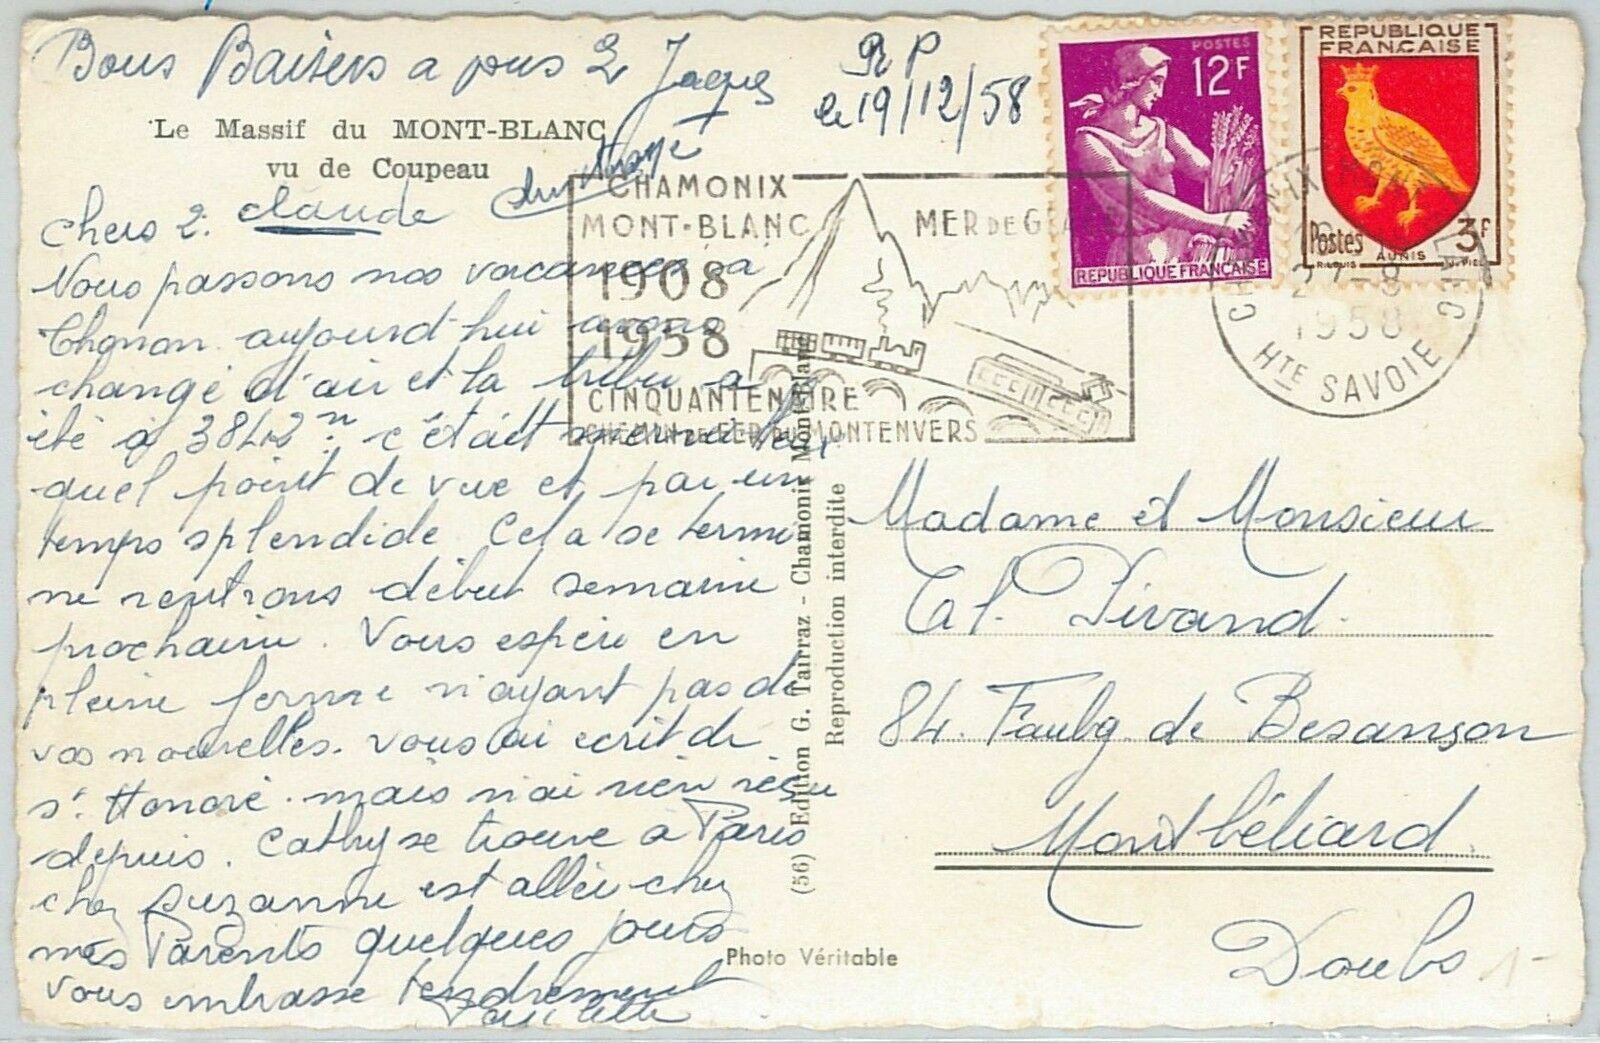 Bons Baisers a vous 2 Jaques
R P
le 19/12/58
Le Massif du MONT-BLANC
vu de Coupeau
claude
Chers 2.
Nous passons nos vacances à
Thonon. aujourd'hui avons
changé d'air et la tribu a
été à 3842 m c'était merveilleux
quel point de vue et par un
temps splendide. Cela se termi
ne rentrons début semaine
prochaine. Vous espère en
pleine forme n'ayant pas de
vos nouvelles. vous ai écrit de
St Honoré. mais n'ai rien reçu
depuis. Cathy se trouve à Paris
chez Suzanne est allée chez
mes Parents quelques jours
vous embrasse tendrement
Paulette
POSTES
12F
REPUBLIQUE FRANÇAISE
REPUBLIQUE
FRANÇAISE
Postes 3F
AUNIS
CHAMONIX
MONT-BLANC
1908
1958
MER DE GLACE
CINQUANTENAIRE
CHEMIN DE FER DU MONTENVERS
CHAMONIX MONT BLANC
1958
HTE SAVOIE
(56) Edition G. Tairraz - Chamonix Mont-Blanc
Reproduction interdite
Madame et Monsieur
Al. Divand.
84. Faubg. de Besançon
Montbéliard.
Doubs
Photo Véritable